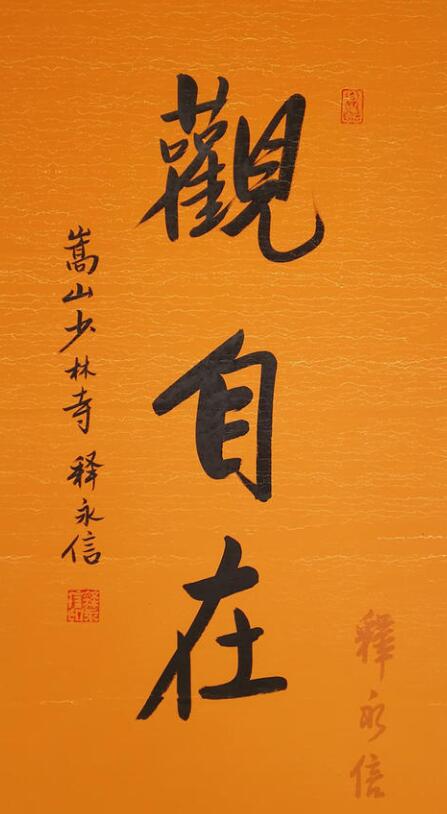 觀自在
嵩山少林寺 释永信
释永信